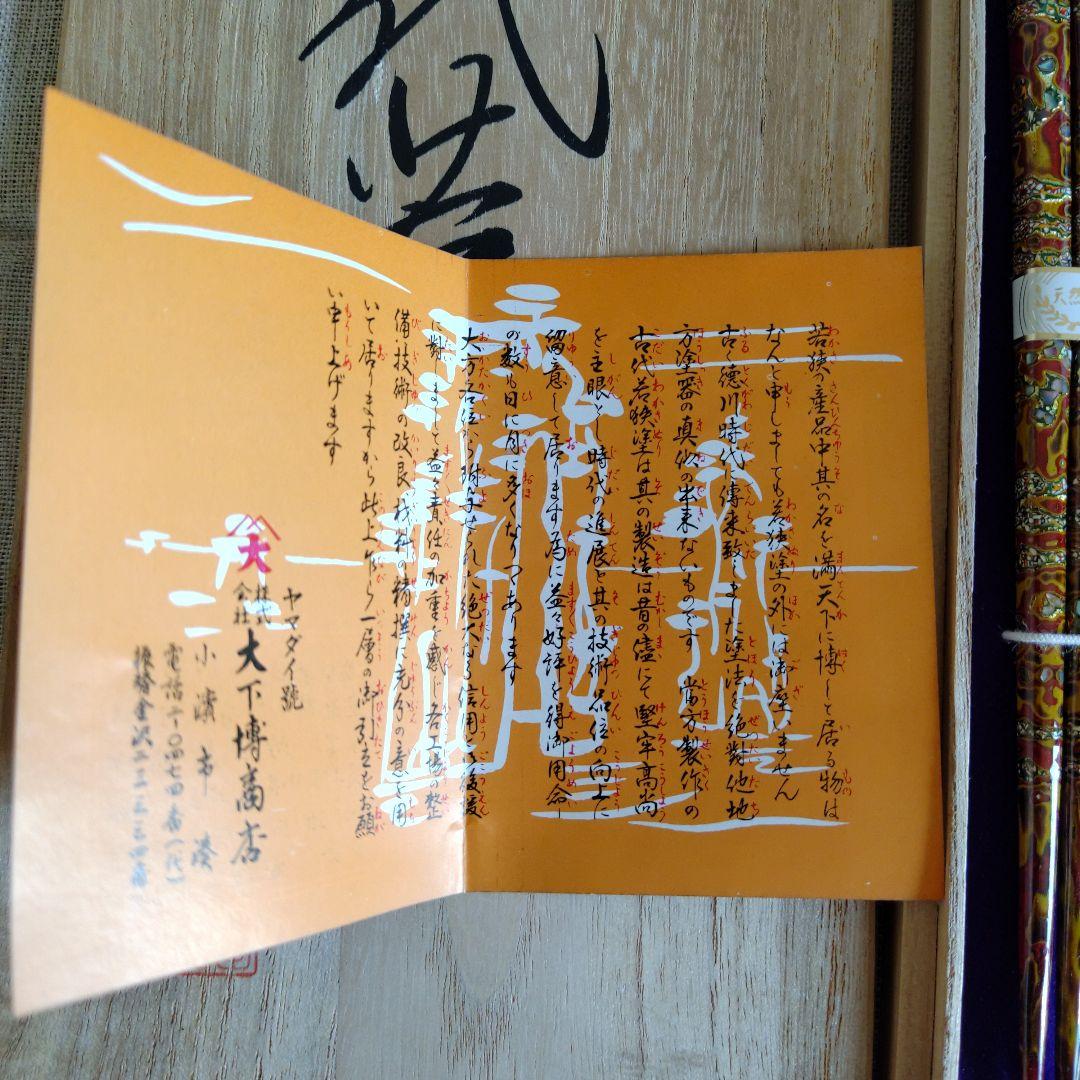 若狭の産品中其の名を満天下に博して居る物は
なんと申しましても若狭塗の外には御座ゐません
古く徳川時代に傳来致しました塗法を絶對他地
方塗器の真似の出来ないものです 當方製作の
古代若狭塗は其の製造は昔の儘にて堅牢高尚
を主眼とし時代の進展と其の技術品位の向上に
留意して居ります為に益々好評を得御用命
の数も日に月に多くなりつゝあります
大方各位から御寄せられた絶大なる信用と後援
に對しまして益々責任の加重を感じ各工場の整
備技術の改良材料の精撰に充分の意を用
いて居りますから此上乍ら一層の御引立をお願
い申上げます
大
ヤマダイ號
株式会社 大下博商店
小濱市湊
電話二〇四七四番(代)
振替金沢二三二三四番
天然